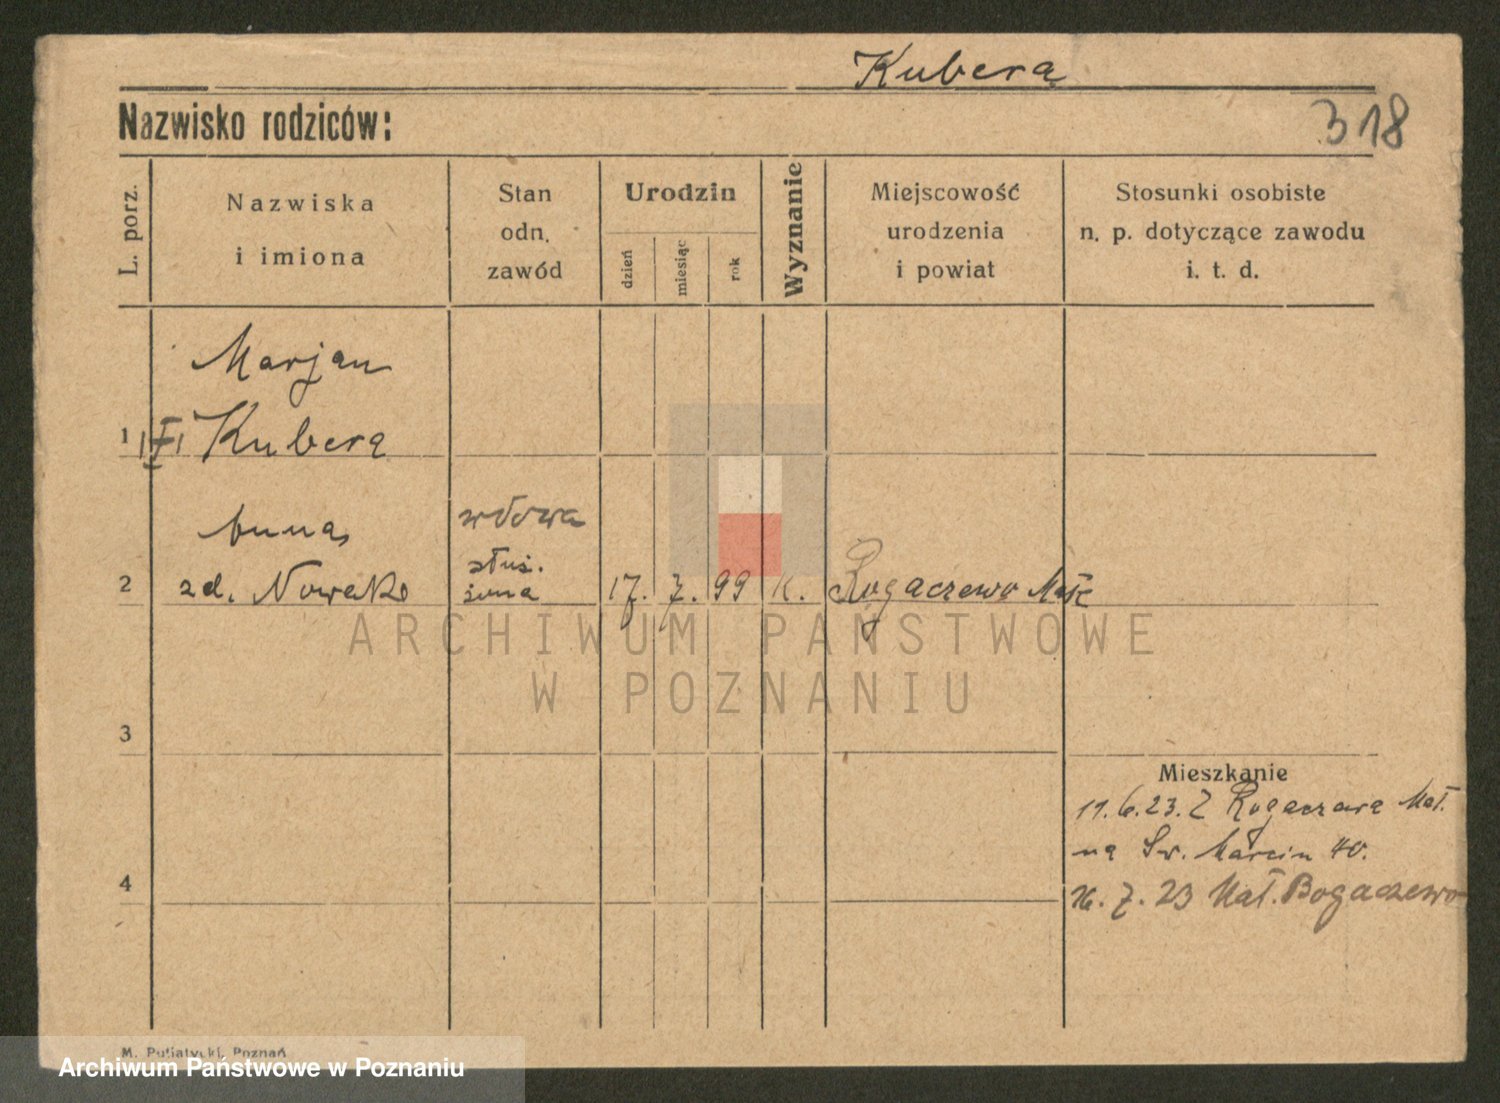 Kubera
Nazwisko rodziców:
318
L. porz.
Nazwiska
i imiona
Stan
odn.
zawód
Urodzin
dzień
miesiąc
rok
Wyznanie
Miejscowość
urodzenia
i powiat
Stosunki osobiste
n. p. dotyczące zawodu
i. t. d.
Marjan
1
Kubera
Anna
zd. Nowak
wdowa
służ.
2
17. 7. 99 K. Rogaczewo Małe
3
4
Mieszkanie
11.6.23. Z Rogaczewa Mał.
na Św. Marcin 40.
16. 7. 23 Mał. Bogaczewo
ARCHIWUM PAŃSTWOWE
W POZNANIU
M. Putiatycki, Poznań
Archiwum Państwowe w Poznaniu